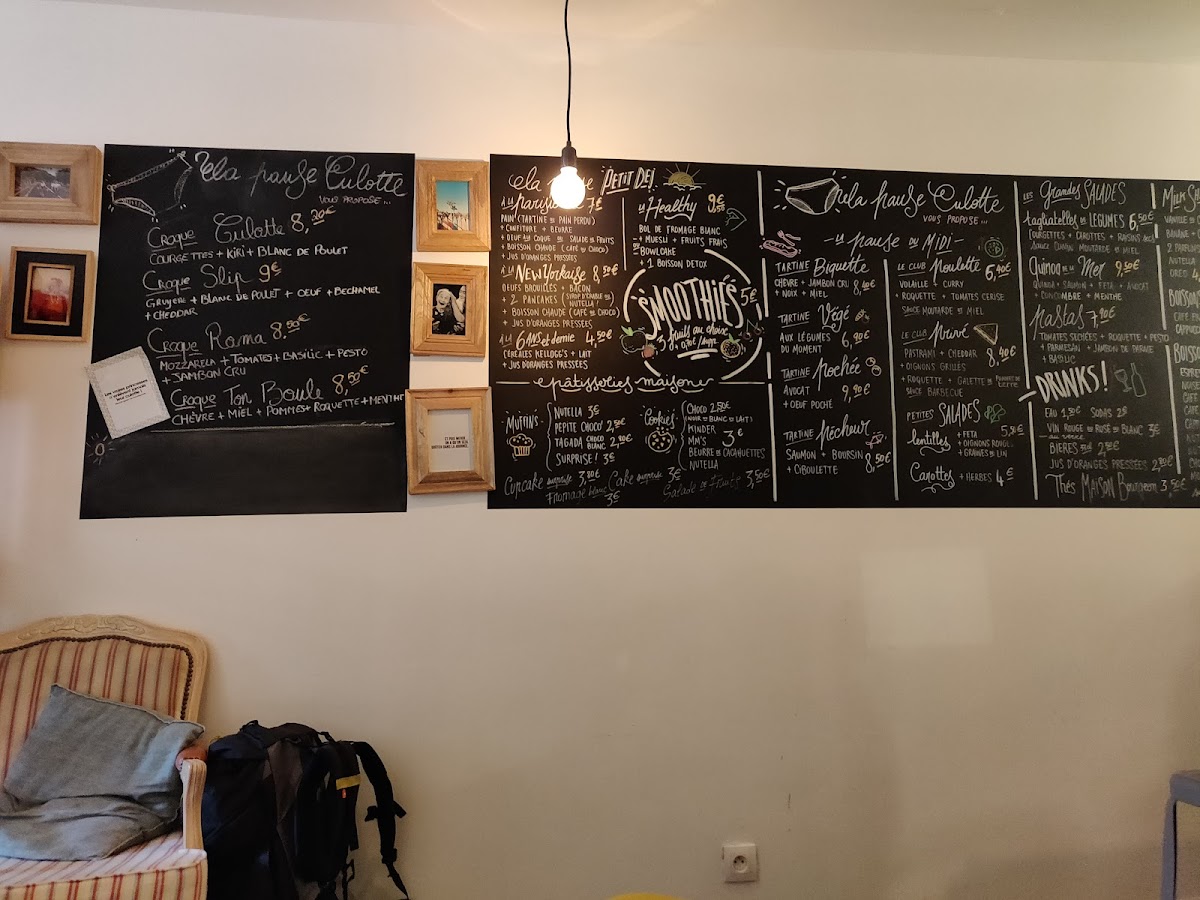 la pause Culotte
VOUS PROPOSE ...
Croque Culotte 8,20€
COURGETTES + KIRI + BLANC DE POULET
Croque Slip 9€
GRUYERE + BLANC DE POULET + OEUF + BECHAMEL
+ CHEDDAR
Croque Roma 8,50€
MOZZARELLA + TOMATES + BASILIC + PESTO
+ JAMBON CRU
Croque Ton Boule 8,50€
CHÈVRE + MIEL + POMMES + ROQUETTE + MENTHE
la PETIT DEJ
À la parisienne 7€
PAIN (TARTINE OU PAIN PERDU)
+ CONFITURE + BEURRE
+ OEUF À LA COQUE OU SALADE DE FRUITS
+ BOISSON CHAUDE (CAFÉ OU CHOCO)
+ JUS D'ORANGES PRESSÉES
À la NEWYorkaise 8,50€
OEUFS BROUILLÉS + BACON
+ 2 PANCAKES (SIROP D'ÉRABLE OU NUTELLA)
+ BOISSON CHAUDE (CAFÉ OU CHOCO)
+ JUS D'ORANGES PRESSÉES
À la 6 ANS et demie 4,50€
CÉRÉALES KELLOGG'S + LAIT
+ JUS D'ORANGES PRESSÉES
la Healthy 9€
BOL DE FROMAGE BLANC
+ MUESLI + FRUITS FRAIS
OU BOWLCAKE
+ 1 BOISSON DETOX
SMOOTHIES 5€
3 fruits au choix
pâtisseries maison
MUFFINS
NUTELLA 3€
PEPITE CHOCO 2,50€
TAGADA CHOCO BLANC 2,90€
SURPRISE! 3€
Cookies
CHOCO 2,50€
(NOIR OU BLANC OU LAIT)
KINDER
MM'S 3€
BEURRE DE CACAHUETTES
NUTELLA
Cupcake surprise 3,80€ Cake surprise 3€ Salade de fruits 3,50€
Fromage blanc 3€
la pause Culotte
VOUS PROPOSE ...
- la pause du MIDI -
TARTINE Biquette
CHÈVRE + JAMBON CRU 8,40€
+ NOIX + MIEL
TARTINE Végé
AUX LÉGUMES 6,90€
DU MOMENT
TARTINE Pochée
AVOCAT 9,90€
+ OEUF POCHÉ
TARTINE Pécheur
SAUMON + BOURSIN 8,50€
+ CIBOULETTE
LE CLUB Poulette 6,40€
VOLAILLE + CURRY
+ ROQUETTE + TOMATES CERISE
SAUCE MOUTARDE ET MIEL
LE CLUB Privé
PASTRAMI + CHEDDAR 8,40€
+ OIGNONS GRILLÉS
+ ROQUETTE + GALETTE DE POMMES DE TERRE
SAUCE BARBECUE
PETITES SALADES
lentilles + FETA 5,50€
+ OIGNONS ROUGES
+ GRAINES DE LIN
Carottes + HERBES 4€
LES Grandes SALADES
tagliatelles DE LÉGUMES 6,50€
(COURGETTES + CAROTTES + RAISINS SECS)
SAUCE CITRON MOUTARDE ET MIEL
Quinoa DE LA Mer 9,50€
QUINOA + SAUMON + FETA + AVOCAT
+ CONCOMBRE + MENTHE
Pastas 7,90€
TOMATES SÉCHÉES + ROQUETTE + PESTO
+ PARMESAN + JAMBON DE PARME
+ BASILIC
DRINKS!
EAU 1,50€ SODAS 2€
VIN ROUGE OU ROSÉ OU BLANC 3€
BIÈRES 2€
JUS D'ORANGES PRESSÉES 2,80€
Thés MAISON Bourgeon 3,50€